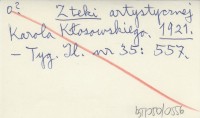 Z teki artystycznej
Karola Kłosowskiego. 1921.
– Tyg. Il. nr 35: 557.